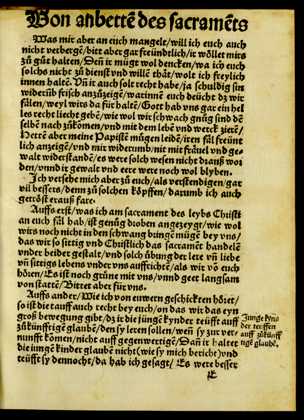 Von anbetten des sacramēts
Was mir aber an euch mangelt / will ich euch auch
nicht verbergē / bitt aber gar freündtlich / ir wöllet mirs
zů gůt halten / Deñ it mügt wol dencken / wa ich euch
solchs nicht zů dienst vnd willē thåt / wolt ich freylich
innen haltē. Vñ it auch solt recht habe / ja schuldig sin
widerüb frisch anzůzeigē / warinnē euch deücht dz wir
fålen / weyl wirs da für haltē / Gott hab vns gar ein hel
les recht liecht gebē / wie wol wir schwach gnůg sind dē
selbē nach zůkōmen / vnd mit dem lebē vnd werck zierē /
Dette aber meine Papistē mügen leidē / iren fål freünt
lich anzeigē / vnd mit widerumb / nit mit fråuel vnd ge
walt widerstandē / es were solch wesen nicht drauß wor
den / vnnd ir gewalt vnd eere were noch wol blyben.
Ich versehe mich aber zů euch / als verstendigen / gar
vil bessers / denn zů solchen köpffen / darumb ich auch
getrost erauß fare.
Auffs erst / was ich am sacrament des leybs Christi
an euch fål hab / ist genůg droben angezeygt / wie wol
wirs noch nicht in den schwang bringē mügē bey vns /
das wir so sittig vnd Christlich das sacramēt handelē
vnder beider gestalt / vnd solch übung der lere vñ liebe
vñ sittigs lebens vnder vns auffrichtē / als wir vō euch
hören / Es ist noch grüne mit vns / vnnd geet langsam
von stattē / Bittet aber für vns.
Auffs ander / Wie ich von euwern geschickten hōret /
so ist dit auff auch recht bey euch / on das wir das eyn
groß bewegung gibt / dz ir die jungē kynder teüfft auff
zůkünfftigē glaubē / den sy leren sollen / wen sy zur ver-
nunfft kōmen / nicht auff gegenwertigē / Dañ it haltet
die jungē kinder glaubē nicht (wie sy mich bericht) vnd
teüfft sy dennocht / da hab ich gesagt / Es were besser
Junge kyns
der teüffen
auff zůkünff
tigē glaubē.